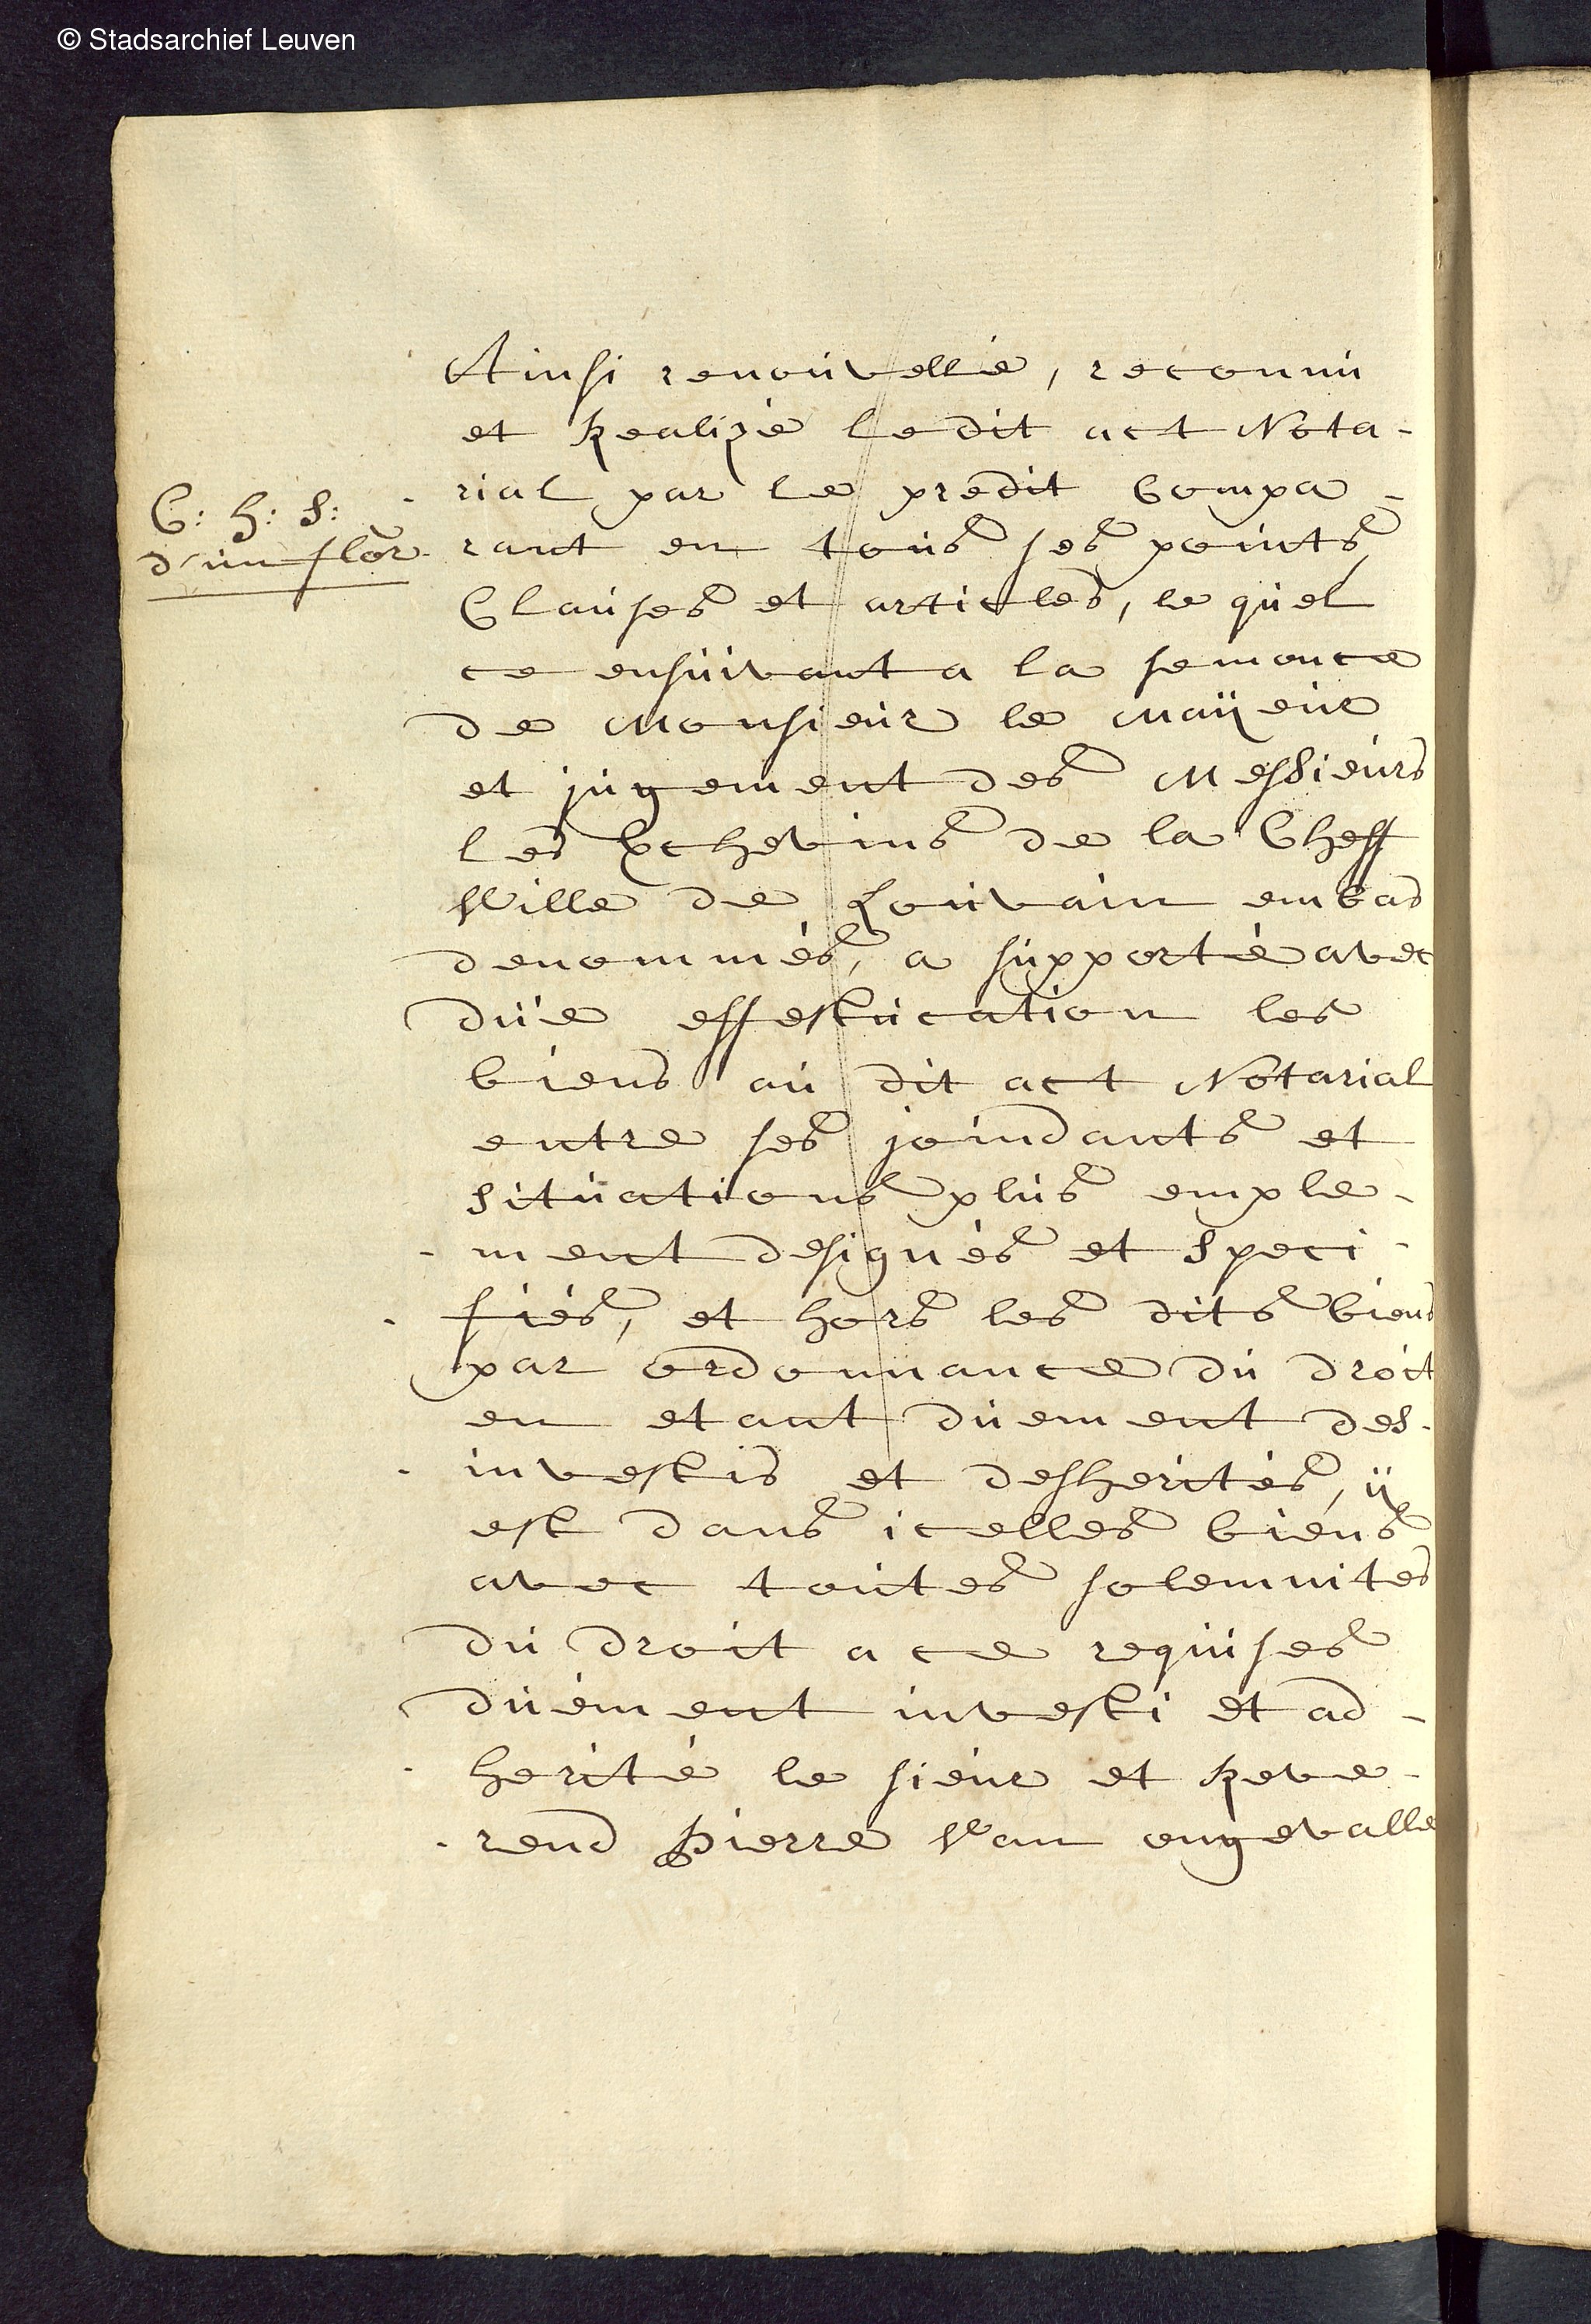 © Stadsarchief Leuven
Ainsi renouvellé, reconnu
et Realizé le dit act Nota-
-rial par le predit Compa-
C: H: S:
d'un flor.
rant en tous ses points,
Clauses et articles, le quel
ce ensuivant a la semonce
de Monsieur le Maÿeur
et jugement des Messieurs
les Echevins de la Cheff
Ville de Louvain embas
denommés, a supporté avec
düe effestucation les
biens au dit act Notarial
entre ses joindants et
situations plus emple-
-ment designés et speci-
-fiés, et hors les dits biens
par ordonnance du droit
en etant duement des-
-investis et desherités, ÿ
est dans icelles biens
avec toutes solemnites
du droit a ce requises
duëment investi et ad-
-herité le sieur et Reve-
-rend Pierre Van engevalle